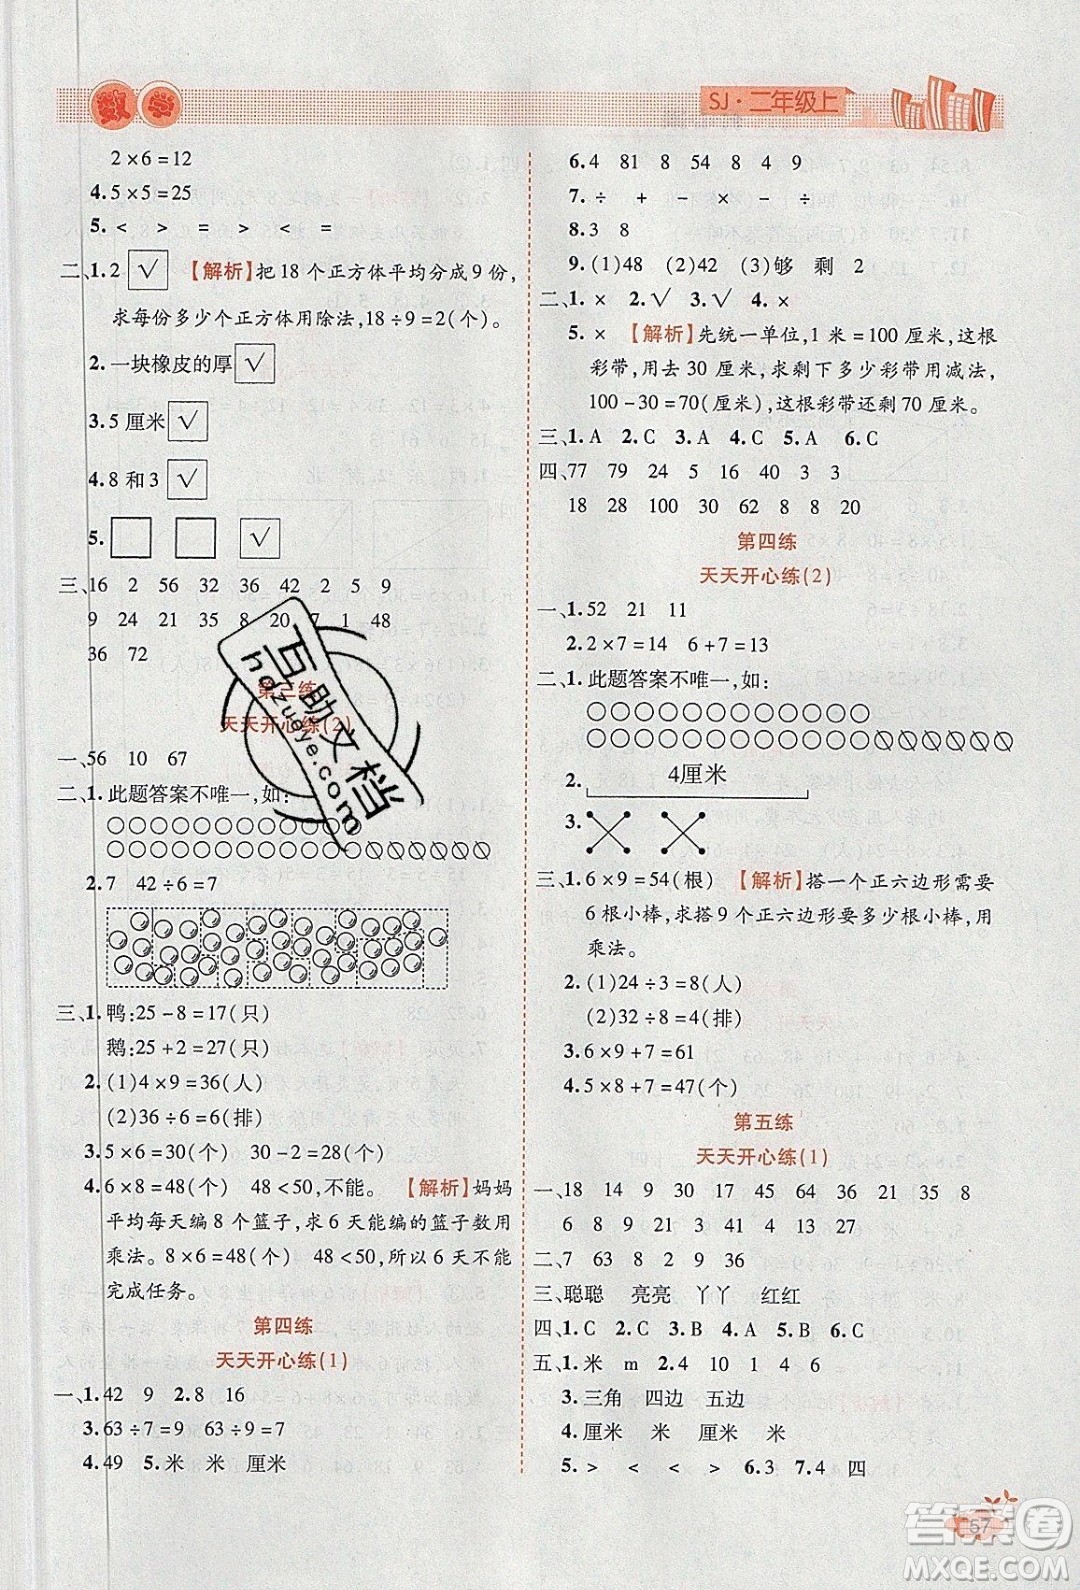 数学
SJ·二年级上
2×6=12
4.5×5=25
5.< > = > < =
二、1.2 √ 【解析】把18个正方体平均分成9份,
求每份多少个正方体用除法,18÷9=2(个)。
2.一块橡皮的厚 √
3.5厘米 √
4.8和3 √
5.□ □ √
三、16 2 56 32 36 42 2 5 9
9 24 21 35 8 20 7 1 48
36 72
第三练
天天开心练(2)
一、56 10 67
二、1.此题答案不唯一,如:
2.7 42÷6=7
三、1.鸭:25-8=17(只)
鹅:25+2=27(只)
2.(1)4×9=36(人)
(2)36÷6=6(排)
3.5×6=30(个) 30-2=28(个)
4.6×8=48(个) 48<50,不能。 【解析】妈妈
平均每天编8个篮子,求6天能编的篮子数用
乘法。8×6=48(个) 48<50,所以6天不能
完成任务。
第四练
天天开心练(1)
一、1.42 9 2.8 16
3.63÷7=9 63÷9=7
4.49 5.米 米 厘米
6.4 81 8 54 8 4 9
7.÷ + - × ÷
8.3 8
9.(1)48 (2)42 (3)够 剩 2
二、1.× 2.√ 3.√ 4.×
5.× 【解析】先统一单位,1米=100厘米,这根
彩带,用去30厘米,求剩下多少彩带用减法,
100-30=70(厘米),这根彩带还剩70厘米。
三、1.A 2.C 3.A 4.C 5.A 6.C
四、77 79 24 5 16 40 3 3
18 28 100 30 62 8 8 20
第四练
天天开心练(2)
一、1.52 21 11
2.2×7=14 6+7=13
二、1.此题答案不唯一,如:
2. 4厘米
3.
三、1.6×9=54(根) 【解析】搭一个正六边形需要
6根小棒,求搭9个正六边形要多少根小棒,用
乘法。
2.(1)24÷3=8(人)
(2)32÷8=4(排)
3.6×9+7=61
4.5×8+7=47(个)
第五练
天天开心练(1)
一、18 14 9 30 17 45 64 36 35 8
6 8 29 7 9 4 13 27
二、7 63 8 2 9 36
三、聪聪 亮亮 丫丫 红红
四、1.C 2.A 3.B 4.A 5.B 6.C
五、1.米 m 2.4 10 1 4 6
3.三角 四边 五边
4.厘米 厘米 米 厘米
5.> < < < > 6.3 7.4 四
57
百助文档
hdzuoye.com
答案圈
MXQE.COM